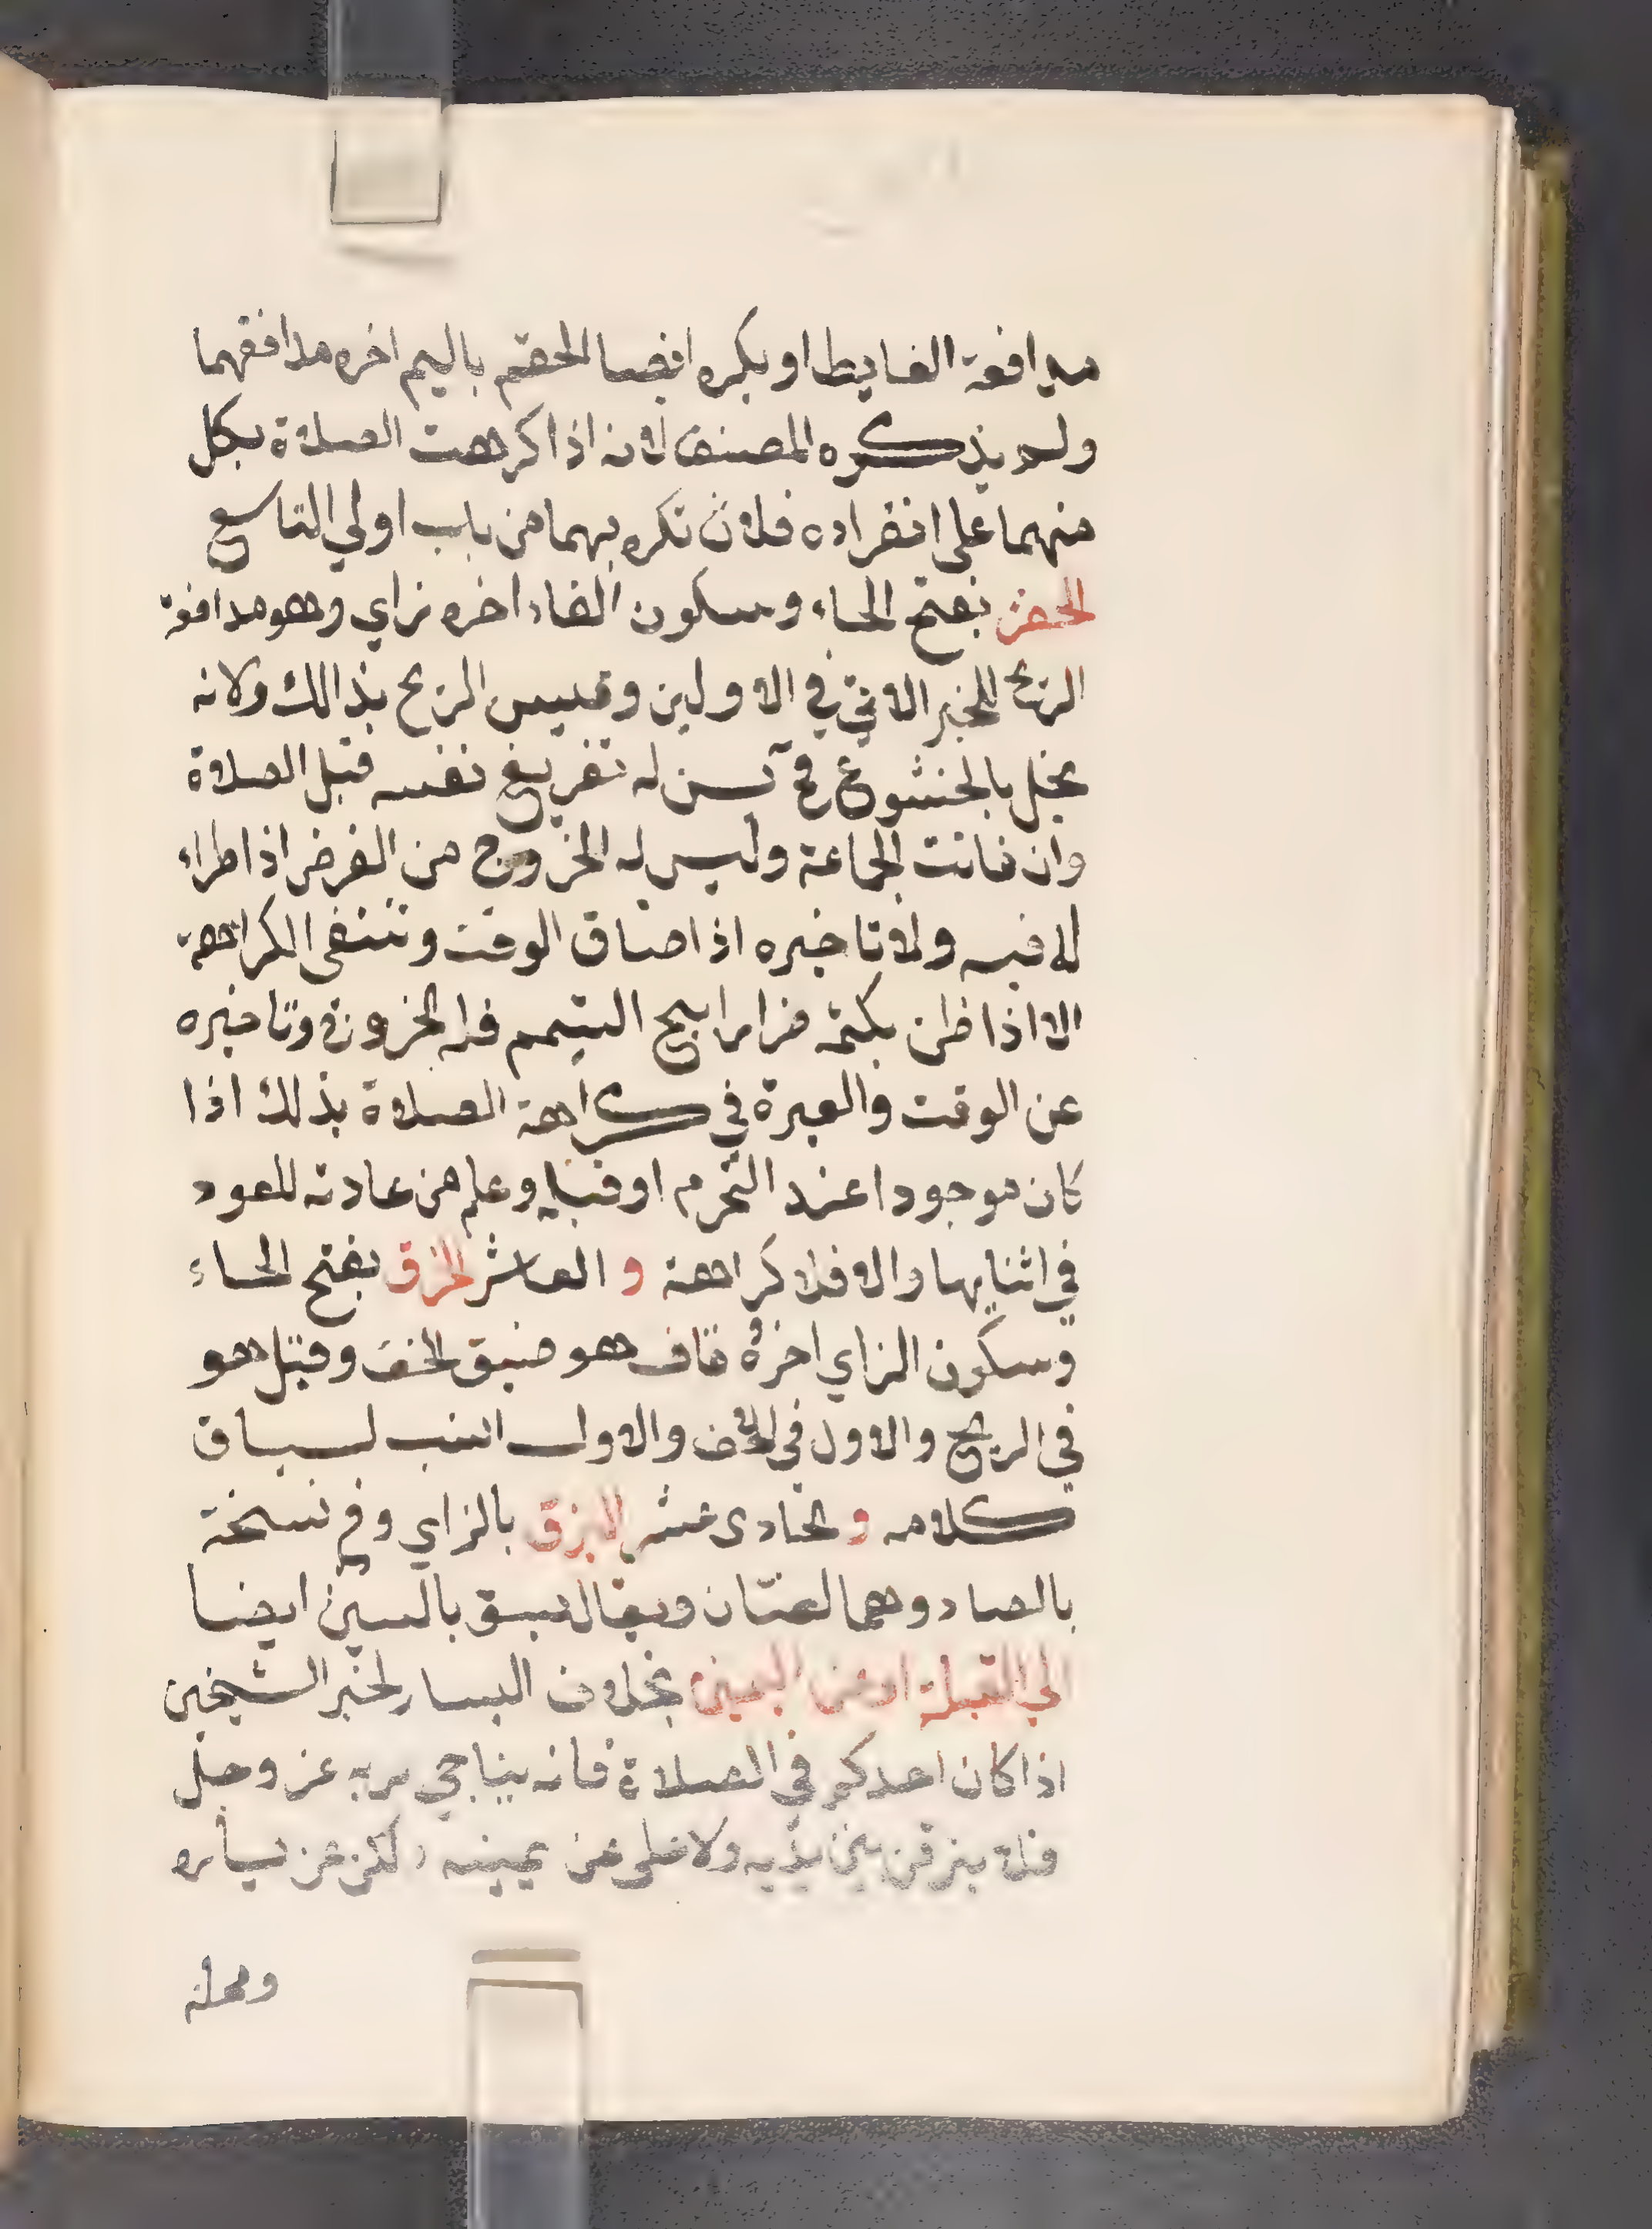 مدافعة الغايط او يكره ايضا الحقم بالميم اخره مدافقهما
ولم يذكره المصنف لانه اذا كرهت الصلاة بكل
منهما على انفراده فلان تكره بهما من باب اولي التاسع
الحفز بفتح الحاء وسكون الفاء اخره زاي وهو مدافعة
الريح للخبر الاتي في الاولين وقيس الريح بذالك ولانه
يخل بالخشوع في تسن له تفريغ نفسه قبل الصلاة
وان فاتت الجماعة وليس له الخروج من الفرض اذا طراء
له فيه ولا تاخيره اذا ضاق الوقت وتنتفى الكراهة
الا اذا ظن بكتمه ضرا يبيح التيمم فله الخروج وتاخيره
عن الوقت والعبرة في كراهة الصلاة بذلك اذا
كان موجودا عند التحرم او قبله وعلم من عادته للعود
في اثنايها والا فلا كراهة و العاشر الحزق بفتح الحاء
وسكون الزاي اخره قاف هو ضيق الخف وقيل هو
في الريح والاول في الخف والاول انسب لسياق
كلامه و الحادى عشر البزق بالزاي وفي نسخة
بالصاد وهما لغتان ويقال بسق بالسين ايضا
الي القبلة او عن اليمين بخلاف اليسار لخبر الشيخين
اذا كان احدكم في الصلاة فانه يناجي ربه عز وجل
فلا يبزقن بين يديه ولا على عن يمينه لكن عن يساره
ومحله